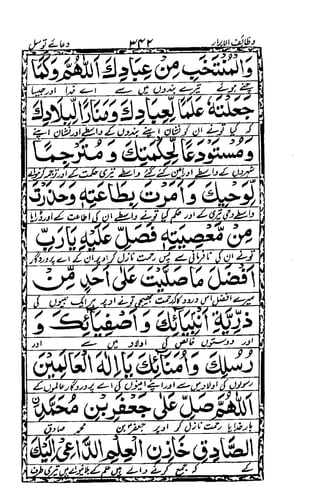 وظائف الابرار ۳۴۲ دعائے توسل
وَالْمُنْتَخَبِ مِنْ عِبَادِكَ اَللّٰهُمَّ وَكَمَا
تیرے بندوں میں سے اے خدا اور جیسا
جَعَلْتَهٗ عَلَمًا لِعِبَادِكَ وَمَنَارًا لِبِلَادِكَ
کہ کیا تونے ان کو نشان اپنے بندوں کے واسطے اور نشان اپنے
وَمُسْتَوْدَعًا لِحِكْمَتِكَ وَمُتَرْجِمًا
شہروں کے واسطے اور امین تیری حکمت کے اور ترجمہ
لِوَحْيِكَ وَاَمَرْتَ بِطَاعَتِهٖ وَحَذَّرْتَ
وحی تیری کے اور حکم کیا تونے واسطے ان کی اطاعت کے اور ڈرایا
مِنْ مَعْصِيَتِهٖ فَصَلِّ عَلَيْهِ يَارَبِّ
تونے ان کی نافرمانی سے پس رحمت نازل کر اوپر ان کے اے پروردگار
اَفْضَلَ مَا صَلَّيْتَ عَلٰى اَحَدٍ مِّنْ
میرے افضل اس درود کہ رحمت بھیجی تونے اوپر ہر ایک نبیوں کی
ذُرِّيَّةِ اَنْبِيَائِكَ وَاَصْفِيَائِكَ وَ
اور دوستوں خالص کی اولاد میں سے اور
رُسُلِكَ وَاُمَنَائِكَ يَا اِلٰهَ الْعَالَمِيْنَ
رسولوں کی اولاد میں سے اور اپنے امینوں کی اے پروردگار عالموں کے
اَللّٰهُمَّ صَلِّ عَلٰى جَعْفَرِ بْنِ مُحَمَّدِنِ
بار خدایا رحمت نازل کر اوپر جعفر بن محمد صادق
الصَّادِقِ خَازِنِ الْعِلْمِ الدَّاعِىْ اِلَيْكَ
کے کہ جمع کرنے والے ہیں علم کے بلانے والے ہیں تیری طرف